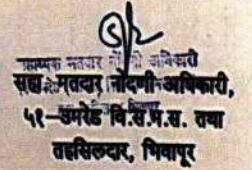 सहा. मतदार नोंदणी अधिकारी,
५१–उमरेड वि.स.म.स. तथा
तहसिलदार, भिवापूर